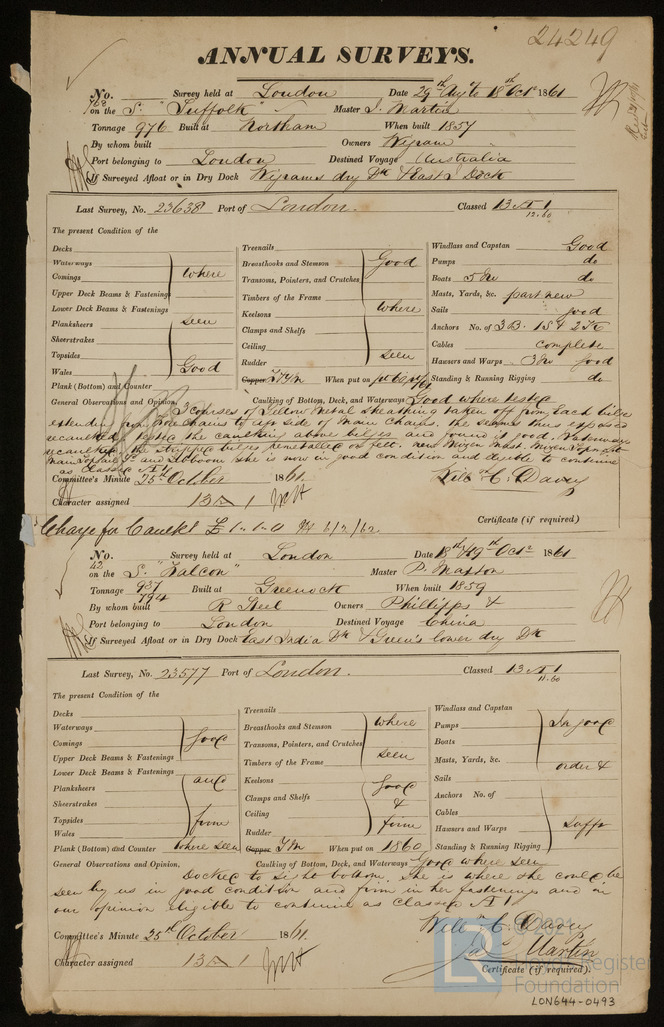 24249
ANNUAL SURVEYS.
No. Survey held at London Date 29th Augt to 18th Octr 1861
762 on the S. "Suffolk" Master J. Martin
Tonnage 976 Built at Northam When built 1857
By whom built Owners Wigram
Port belonging to London Destined Voyage Australia
If Surveyed Afloat or in Dry Dock Wigrams dry Dk & East I Dock
Last Survey, No. 23638 Port of London. Classed 13 A 1
12.60
The present Condition of the
Decks
Waterways
Comings
Upper Deck Beams & Fastenings
Lower Deck Beams & Fastenings
Planksheers
Sheerstrakes
Topsides
Wales
where
seen
Good
Plank (Bottom) and Counter
Treenails
Breasthooks and Stemson
Transoms, Pointers, and Crutches
Timbers of the Frame
Keelsons
Clamps and Shelfs
Ceiling
Rudder
Good
where
seen
Copper Y M When put on
Windlass and Capstan Good
Pumps do
Boats 5 No do
Masts, Yards, &c. part new
Sails good
Anchors No. of 3 B. 1 S & 2 K
Cables complete
Hawsers and Warps 3 No good
Standing & Running Rigging do
General Observations and Opinion, Caulking of Bottom, Deck, and Waterways Good where tested
3 courses of Yellow Metal Sheathing taken off from each bilge
extending from fore chains to aft side of Main Chains. the seams thus exposed
recaulked, tested the caulking above bilges and found it good. Waterways
recaulked, the stripped bilges remetalled on felt. new Mizen Mast. Mizen Topmast
Main Topsail Yd and Jibboom she is now in good condition and eligible to continue
as Classed A 1
Committee's Minute 25th October 1861. Will H. C. Davey
Character assigned 13 A 1
Charge for Caulkg £1-1-0 6/2/62. Certificate (if required)
No. Survey held at London Date 18th & 19th Octr 1861
42 on the S. "Falcon" Master P. Maxton
Tonnage 937 794 Built at Greenock When built 1859
By whom built R Steel Owners Phillipps &
Port belonging to London Destined Voyage China
If Surveyed Afloat or in Dry Dock East India Dk & Green's lower dry Dk
Last Survey, No. 23577 Port of London. Classed 13 A 1
11.60
The present Condition of the
Decks
Waterways
Comings
Upper Deck Beams & Fastenings
Lower Deck Beams & Fastenings
Planksheers
Sheerstrakes
Topsides
Wales
good
and
firm
Plank (Bottom) and Counter where seen
Treenails
Breasthooks and Stemson
Transoms, Pointers, and Crutches
Timbers of the Frame
Keelsons
Clamps and Shelfs
Ceiling
Rudder
where
seen
good
&
firm
Copper Y M When put on 1860
Windlass and Capstan
Pumps
Boats
Masts, Yards, &c.
Sails
Anchors No. of
Cables
Hawsers and Warps
Standing & Running Rigging
In good
order &
sufft
General Observations and Opinion, Caulking of Bottom, Deck, and Waterways Good where seen
Docked to sight bottom. She is where she could be
seen by us in good condition and firm in her fastenings and in
our opinion eligible to continue as classed A 1
Will H. C. Davey
Committee's Minute 25th October 1861. Jas Martin
Character assigned 13 A 1
Certificate (if required).
© 2021
LR
Lloyd's Register
Foundation
LON644-0493